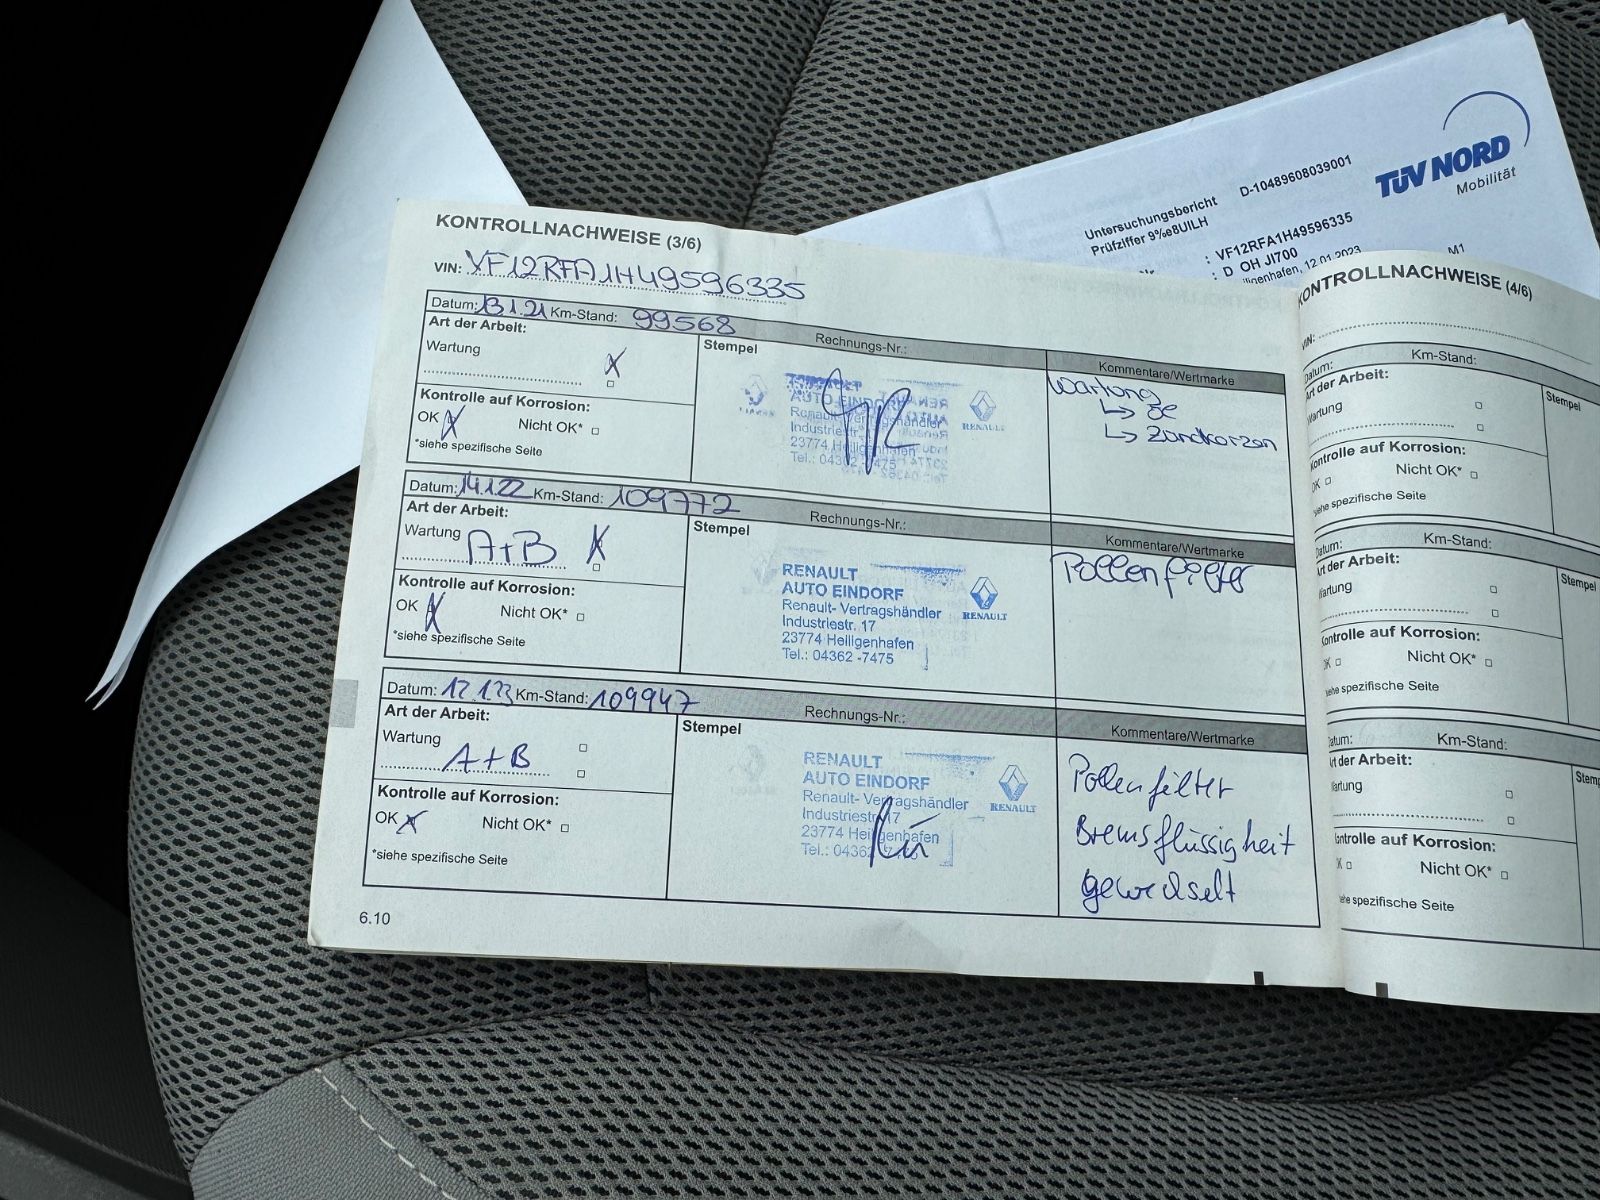 TÜV NORD
Mobilität
Untersuchungsbericht D-10489608039001
Prüfziffer 9‰e8UlLH
: VF12RFA1H49596335
: D OH JI700
M1
KONTROLLNACHWEISE (3/6)
VIN: VF12RFA1H49596335
Datum: 13.1.21 Km-Stand: 99568 Rechnungs-Nr.:
Art der Arbeit:
Wartung X
Kontrolle auf Korrosion:
OK X Nicht OK*
*siehe spezifische Seite
Stempel
Renault-Vertragshändler
Industriestr.
23774 Heiligenhafen
Tel.: 04362 7475
RENAULT
Kommentare/Wertmarke
Wartung
↳ Öl
↳ Zündkerzen
Datum: 14.1.22 Km-Stand: 109772 Rechnungs-Nr.:
Art der Arbeit:
Wartung A+B X
Kontrolle auf Korrosion:
OK X Nicht OK*
*siehe spezifische Seite
Stempel
RENAULT
AUTO EINDORF
Renault- Vertragshändler
Industriestr. 17
23774 Heiligenhafen
Tel.: 04362 -7475
RENAULT
Kommentare/Wertmarke
Pollenfilter
Datum: 12.1.23 Km-Stand: 109947 Rechnungs-Nr.:
Art der Arbeit:
Wartung
A+B
Kontrolle auf Korrosion:
OK X Nicht OK*
*siehe spezifische Seite
Stempel
RENAULT
AUTO EINDORF
Renault- Vertragshändler
Industriestr. 17
23774 Heiligenhafen
Tel.: 04362
RENAULT
Kommentare/Wertmarke
Pollenfilter
Bremsflüssigkeit
gewechselt
6.10
KONTROLLNACHWEISE (4/6)
VIN:
Datum: Km-Stand:
Art der Arbeit:
Wartung
Stempel
Kontrolle auf Korrosion:
OK Nicht OK*
siehe spezifische Seite
Datum: Km-Stand:
Art der Arbeit:
Wartung
Stempel
Kontrolle auf Korrosion:
OK Nicht OK*
siehe spezifische Seite
Datum: Km-Stand:
Art der Arbeit:
Wartung
Kontrolle auf Korrosion:
Nicht OK*
siehe spezifische Seite